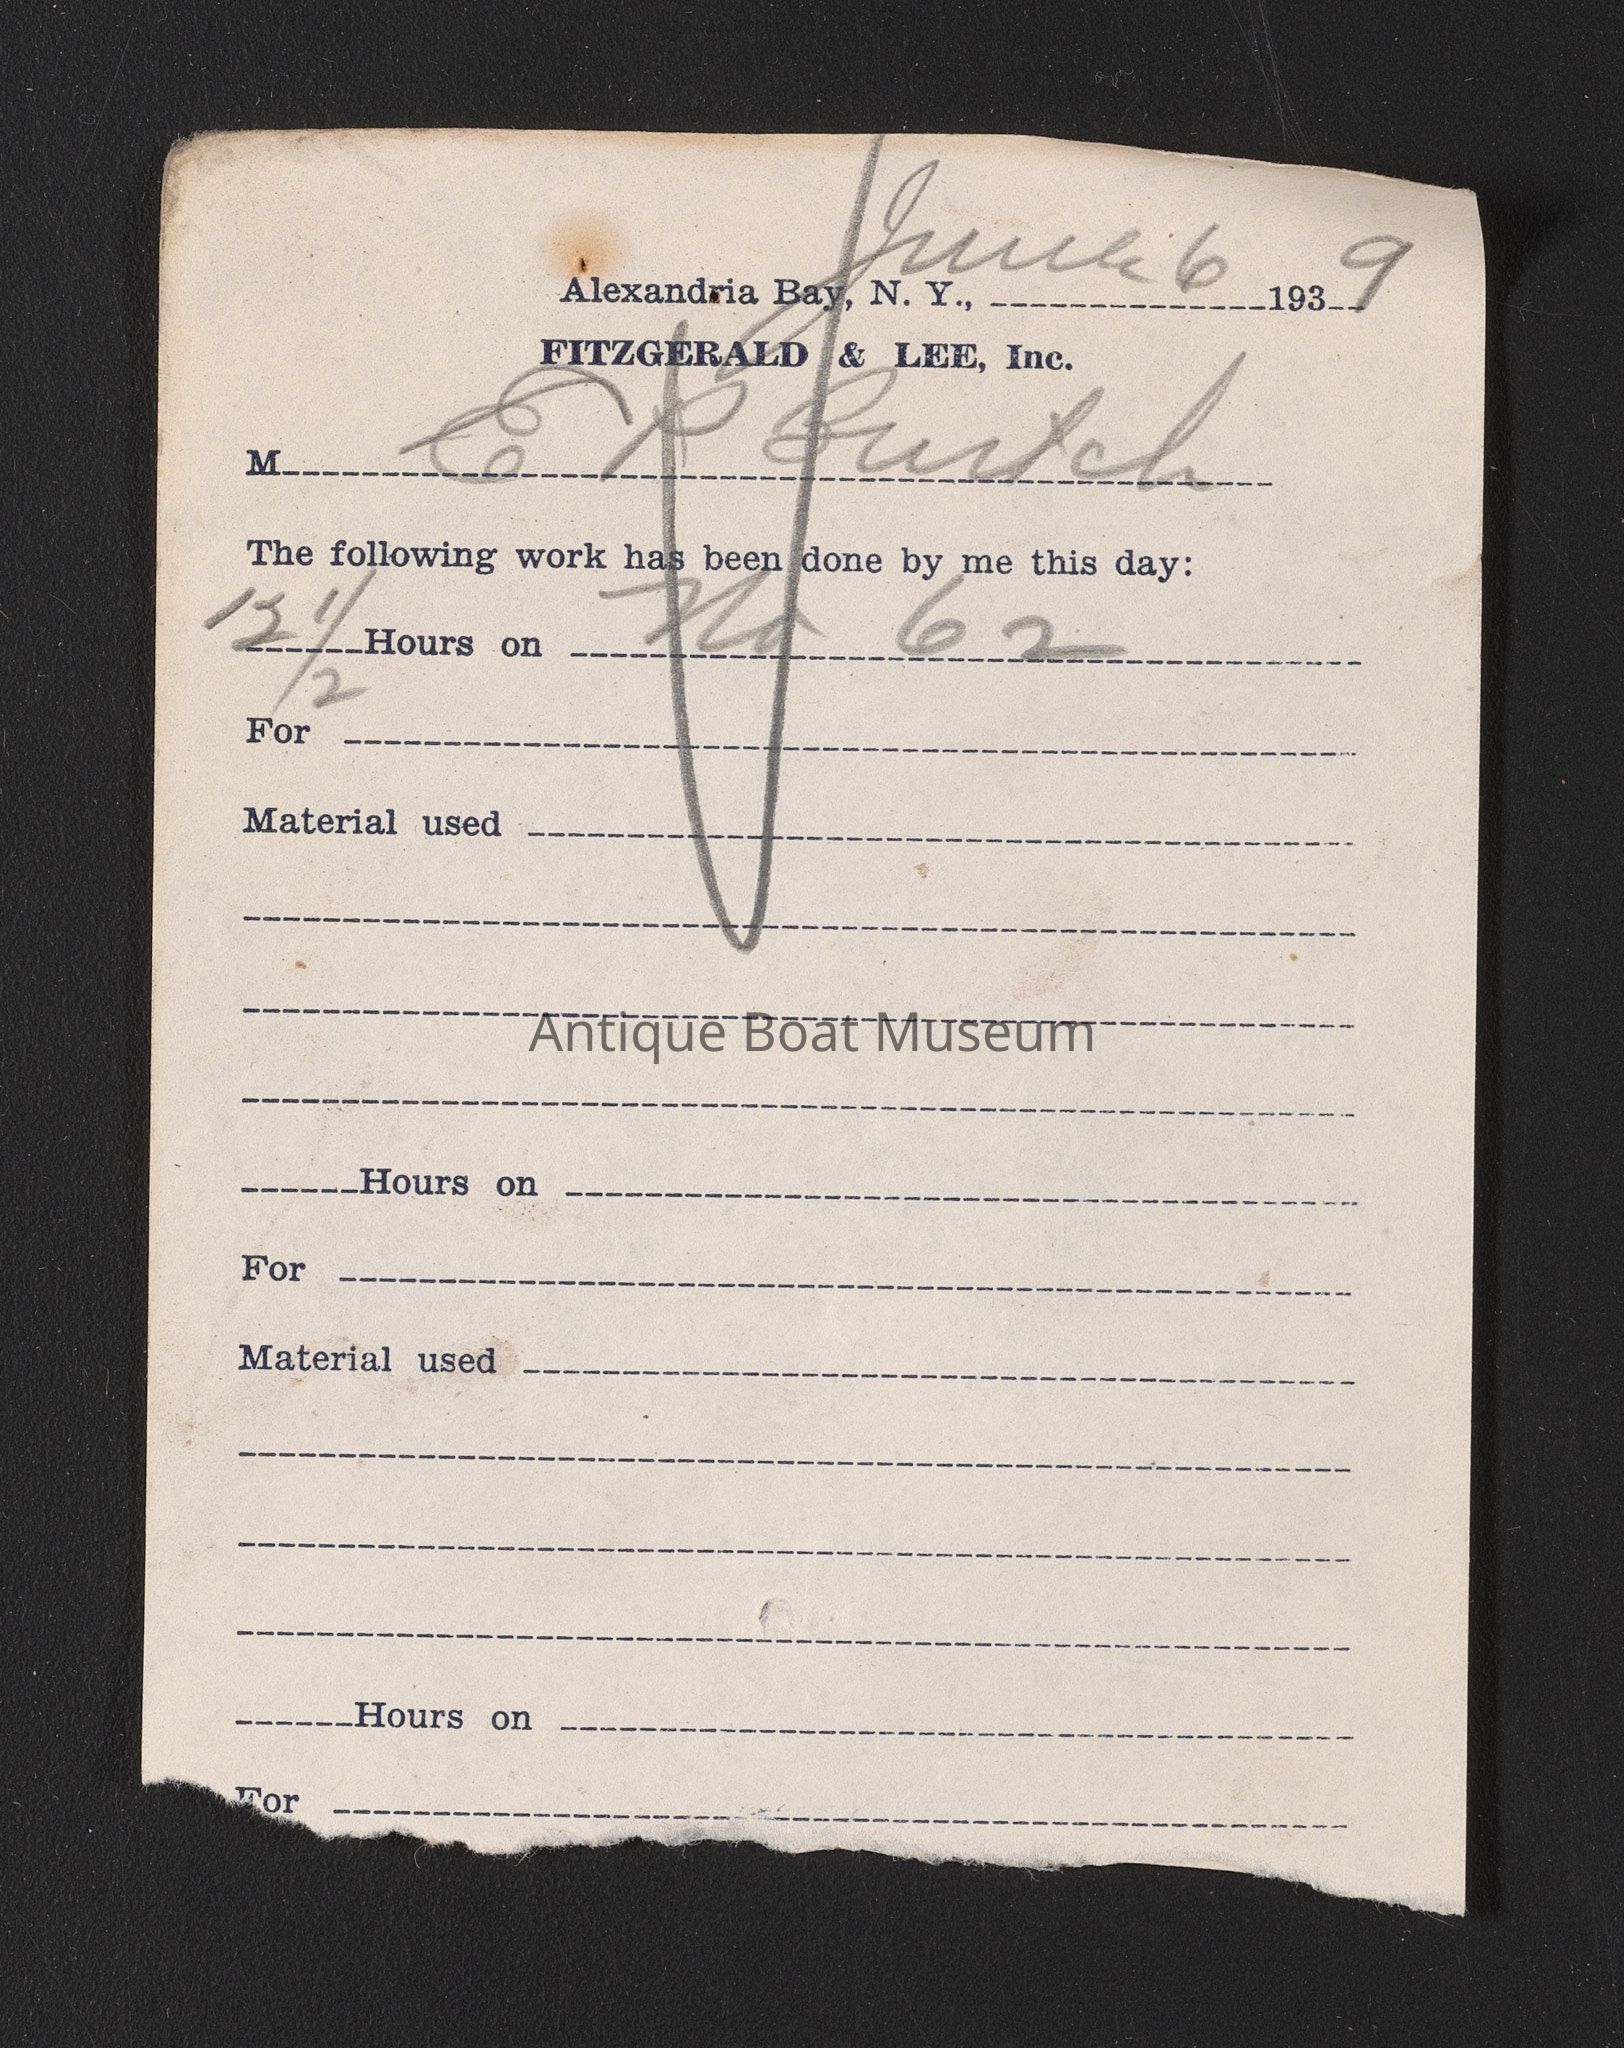 June 6 9
Alexandria Bay, N. Y., 193
FITZGERALD & LEE, Inc.
M E
The following work has been done by me this day:
12 1/2 Hours on No 62
For
Material used
Antique Boat Museum
Hours on
For
Material used
Hours on
For